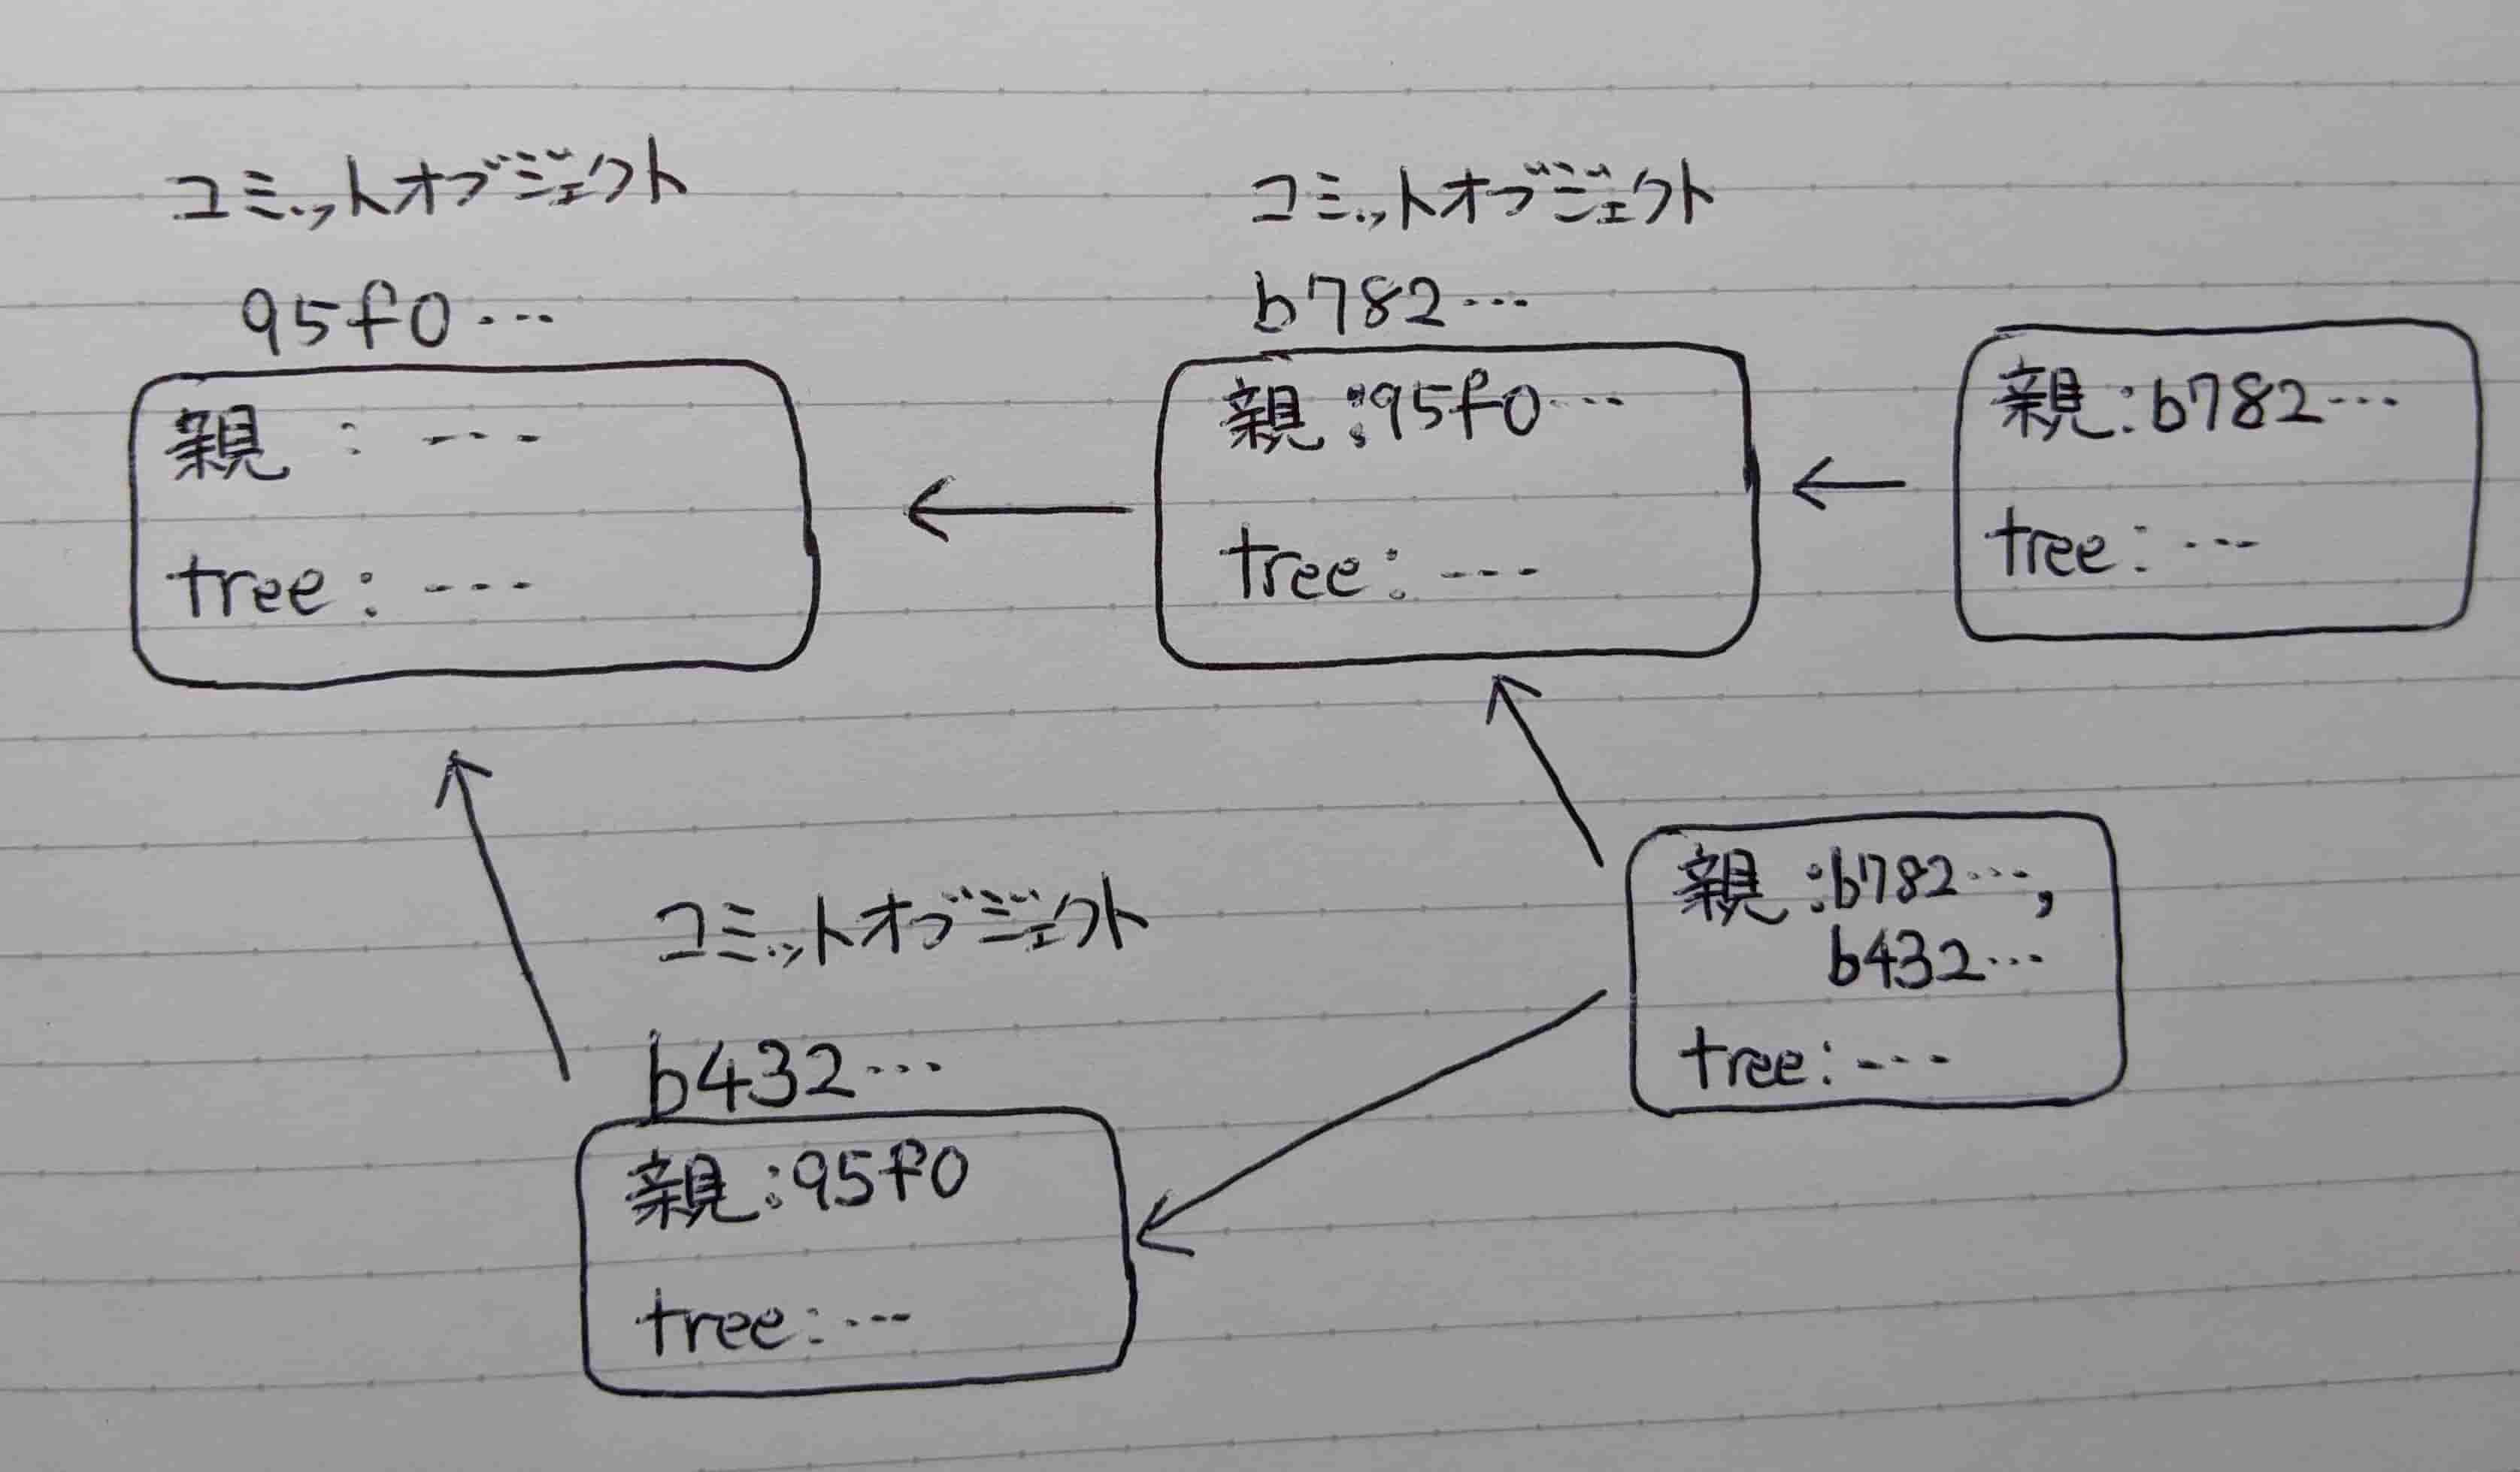 コミットオブジェクト
95f0…
親 : ---
tree : ---
コミットオブジェクト
b782…
親 : 95f0…
tree : ---
親 : b782…
tree : ---
コミットオブジェクト
b432…
親 : 95f0
tree : ---
親 : b782…,
b432…
tree : ---